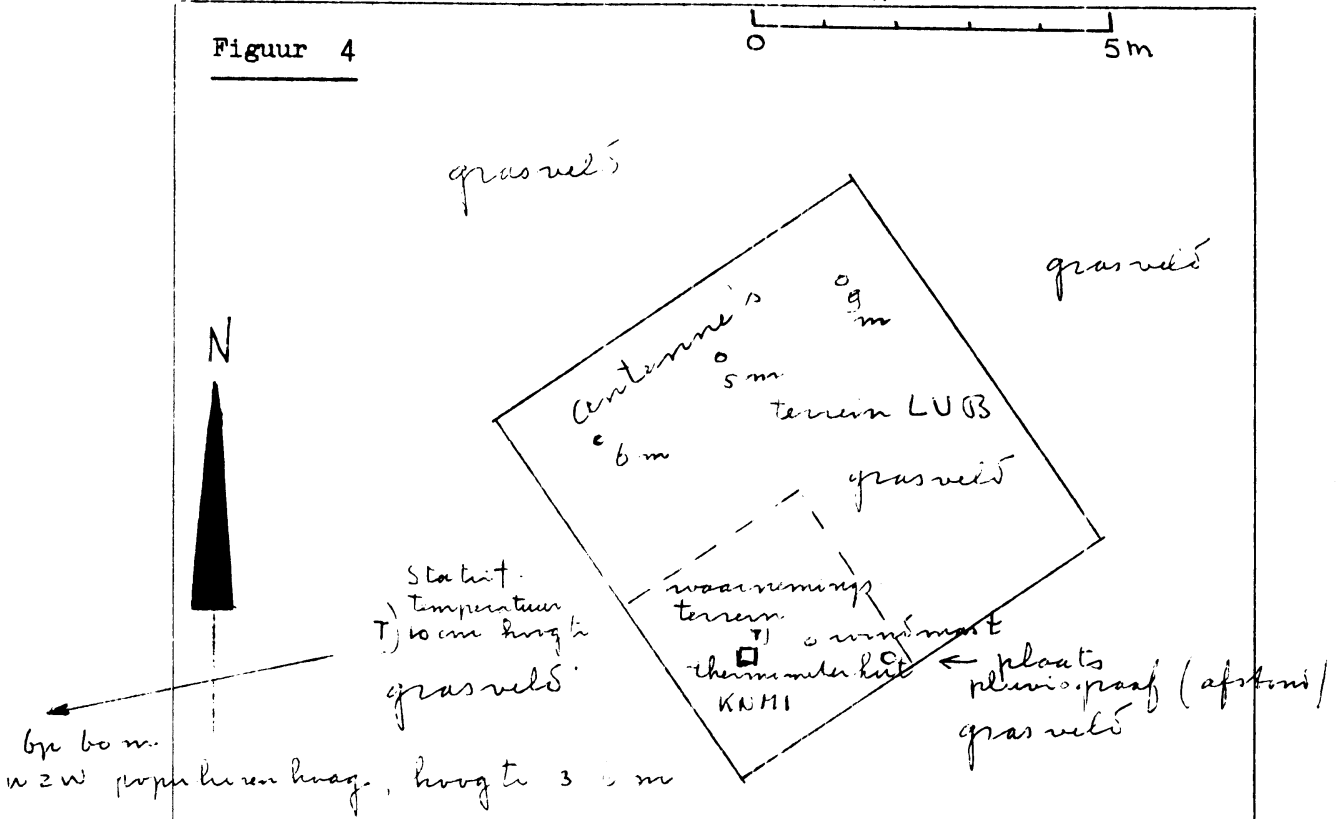 0 5m
Figuur 4
grasveld
grasveld
N
antenne's
9
m
5 m
6 m
terrein LUB
grasveld
Statief
temperatuur
T) 10 cm hoogte
waarnemings
terrein
T)
windmast
thermometerhut
KNMI
← plaats
pluviograaf (afstand)
grasveld
grasveld
op 60 m
WZW populieren haag, hoogte 3 m